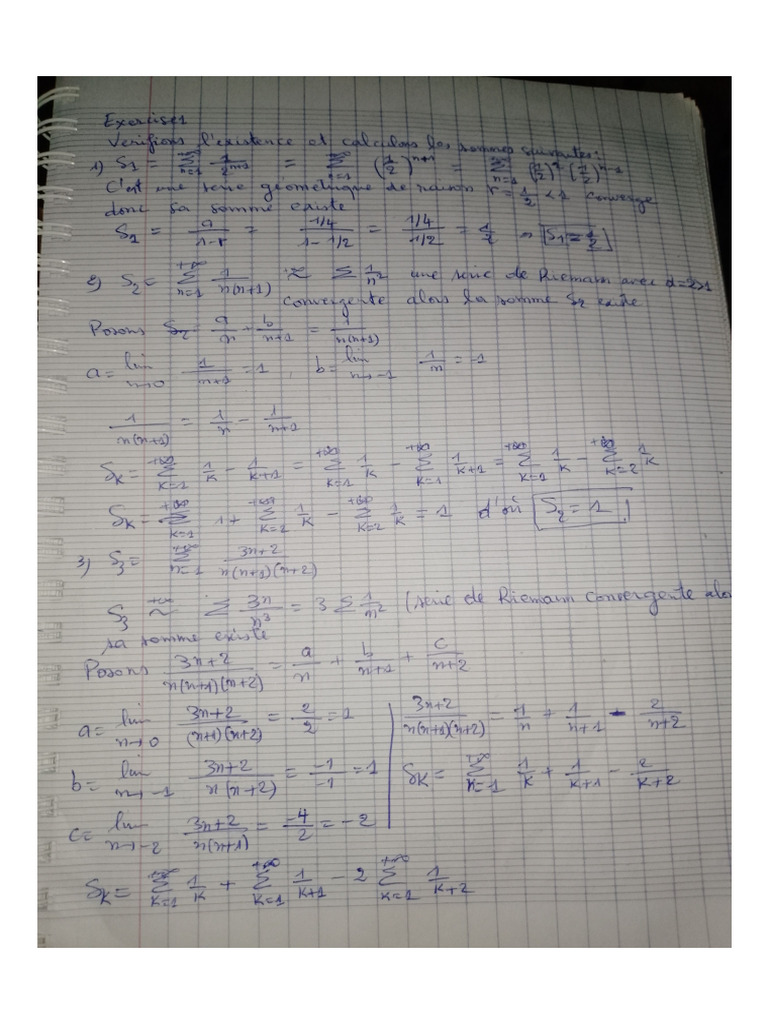 Exercise1
Vérifions l'existence et calculons les sommes suivantes:
1) S₁ = Σ_{n=1}^{+∞} 1/2^{n+1} = Σ_{n=1}^{+∞} (1/2)^{n+1} = Σ_{n=1}^{+∞} (1/2)² (1/2)^{n-1}
C'est une série géométrique de raison r = 1/2 < 1 converge
donc sa somme existe
S₁ = a/(1-r) = (1/4)/(1-1/2) = (1/4)/(1/2) = 1/2 ⇒ S₁ = 1/2
2) S₂ = Σ_{n=1}^{+∞} 1/(n(n+1)) ≈ Σ 1/n² une série de Riemam avec α=2>1
convergente alors la somme S₂ existe
Posons S₂ = a/n + b/(n+1) = 1/(n(n+1))
a = lim_{n→0} 1/(n+1) = 1, b = lim_{n→-1} 1/n = -1
1/(n(n+1)) = 1/n - 1/(n+1)
S_K = Σ_{K=1}^{+∞} 1/K - 1/(K+1) = Σ_{K=1}^{+∞} 1/K - Σ_{K=1}^{+∞} 1/(K+1) = Σ_{K=1}^{+∞} 1/K - Σ_{K=2}^{+∞} 1/K
S_K = Σ_{K=1}^{+∞} 1 + Σ_{K=2}^{+∞} 1/K - Σ_{K=2}^{+∞} 1/K = 1 d'où S₂ = 1
3) S₃ = Σ_{n=1}^{+∞} (3n+2)/(n(n+1)(n+2))
S₃ ≈^{+∞} Σ 3n/n³ = 3 Σ 1/n² (série de Riemam convergente alo
sa somme existe
Posons (3n+2)/(n(n+1)(n+2)) = a/n + b/(n+1) + c/(n+2)
a = lim_{n→0} (3n+2)/((n+1)(n+2)) = 2/2 = 1
b = lim_{n→-1} (3n+2)/(n(n+2)) = -1/-1 = 1
c = lim_{n→-2} (3n+2)/(n(n+1)) = -4/2 = -2
(3n+2)/(n(n+1)(n+2)) = 1/n + 1/(n+1) - 2/(n+2)
S_K = Σ_{K=1}^{+∞} 1/K + 1/(K+1) - 2/(K+2)
S_K = Σ_{K=1}^{+∞} 1/K + Σ_{K=1}^{+∞} 1/(K+1) - 2 Σ_{K=1}^{+∞} 1/(K+2)